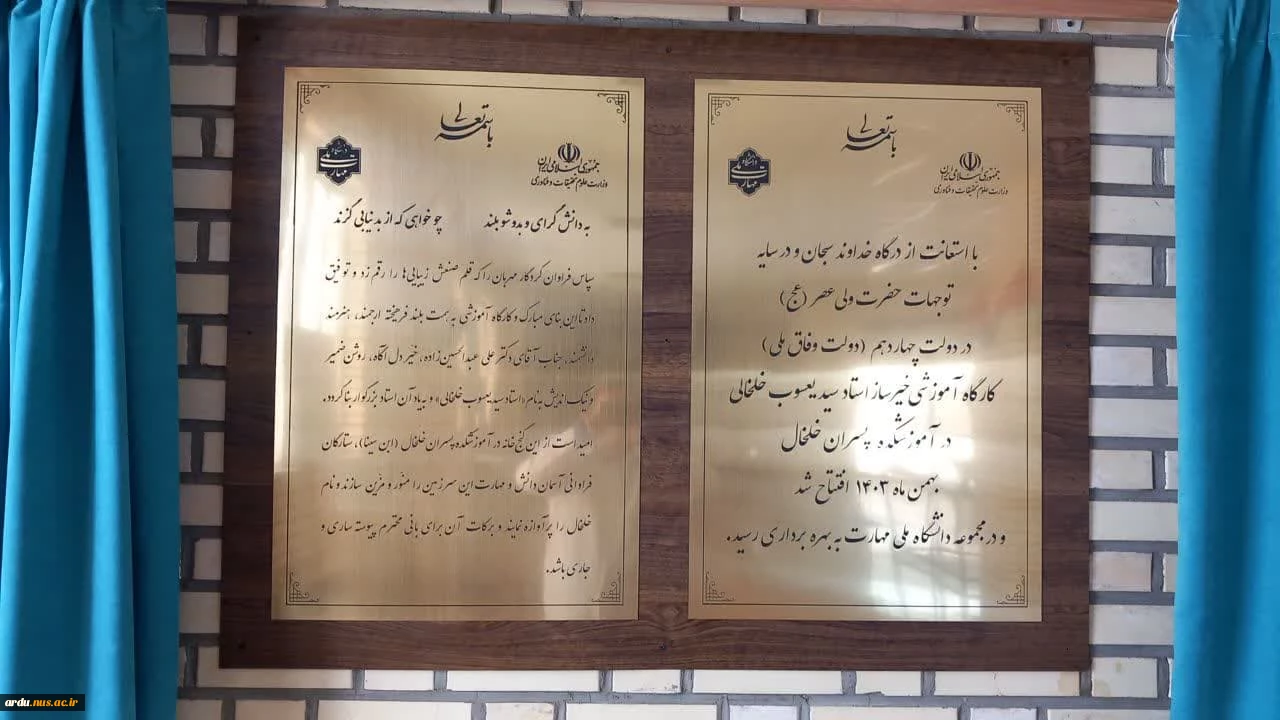 باسمه تعالی
جمهوری اسلامی ایران
وزارت علوم تحقیقات و فناوری
دانشگاه ملی مهارت
با استعانت از درگاه خداوند سبحان و در سایه
توجهات حضرت ولی عصر (عج)
در دولت چهاردهم (دولت وفاق ملی)
کارگاه آموزشی خیرساز استاد سید یعسوب خلخالی
در آموزشکده پسران خلخال
بهمن ماه ۱۴۰۳ افتتاح شد
و در مجموعه دانشگاه ملی مهارت به بهره برداری رسید.
باسمه تعالی
جمهوری اسلامی ایران
وزارت علوم تحقیقات و فناوری
دانشگاه ملی مهارت
به دانش گرای و بدو شو بلند چو خواهی که از بد نیابی گزند
سپاس فراوان کردگار مهربان را که قلم صنعش زیبایی‌ها را رقم زد و توفیق
داد تا این بنای مبارک و کارگاه آموزشی به همت بلند فرهیخته ارجمند، هنرمند
دانشمند، جناب آقای دکتر علی عبدالحسین‌زاده، خیّر دل آگاه، روشن ضمیر
و نیک اندیش به نام «استاد سید یعسوب خلخالی» و به یاد آن استاد بزرگوار بنا گردد.
امید است از این گنج خانه در آموزشکده پسران خلخال (ابن سینا)، ستارگان
فراوانی آسمان دانش و مهارت این سرزمین را منوّر و مزین سازند و نام
خلخال را پرآوازه نمایند و برکات آن برای بانی محترم پیوسته ساری و
جاری باشد.
ardu.nus.ac.ir